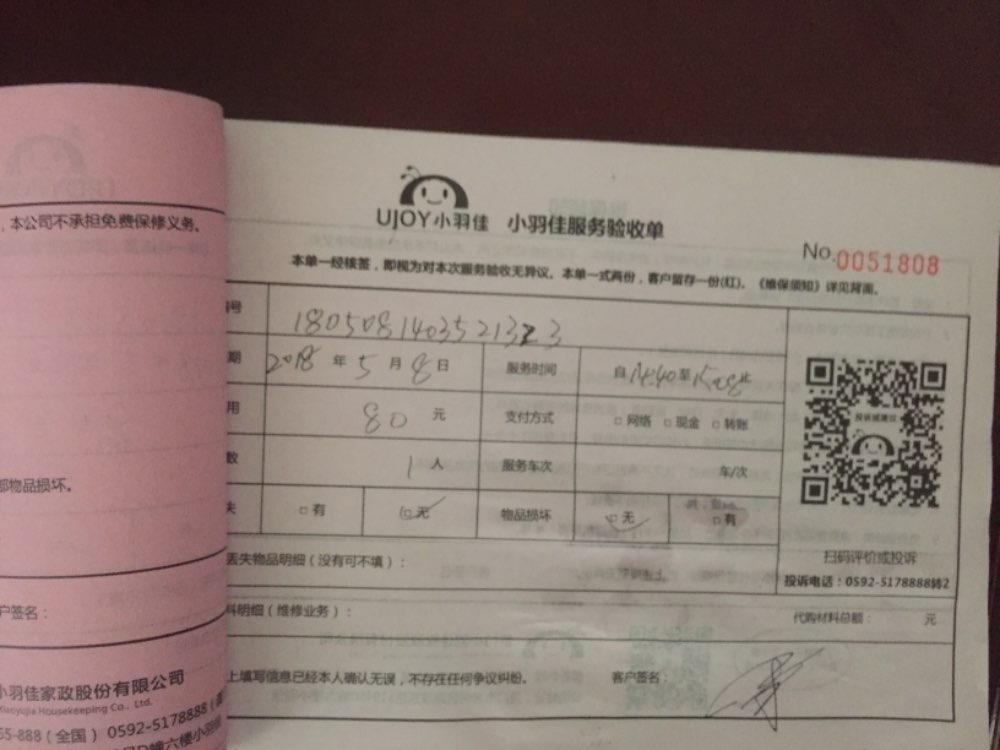 ，本公司不承担免费保修义务。
部物品损坏。
户签名：
小羽佳家政股份有限公司
Xiaoyujia Housekeeping Co., Ltd.
55-888（全国） 0592-5178888
六楼小羽佳
UJOY小羽佳 小羽佳服务验收单
No.0051808
本单一经核签，即视为对本次服务验收无异议。本单一式两份，客户留存一份(红)。《维保须知》详见背面。
号
期 2018 年 5 月 8 日 服务时间 自 14:40 至
用 80 元 支付方式 □ 网络 □ 现金 □ 转账
数 1 人 服务车次 车/次
失 □ 有 □ 无 物品损坏 □ 无 □ 有
投诉或建议
扫码评价或投诉
投诉电话：0592-5178888转2
丢失物品明细（没有可不填）：
料明细（维修业务）： 代购材料总额： 元
上填写信息已经本人确认无误，不存在任何争议纠纷。 客户签名：